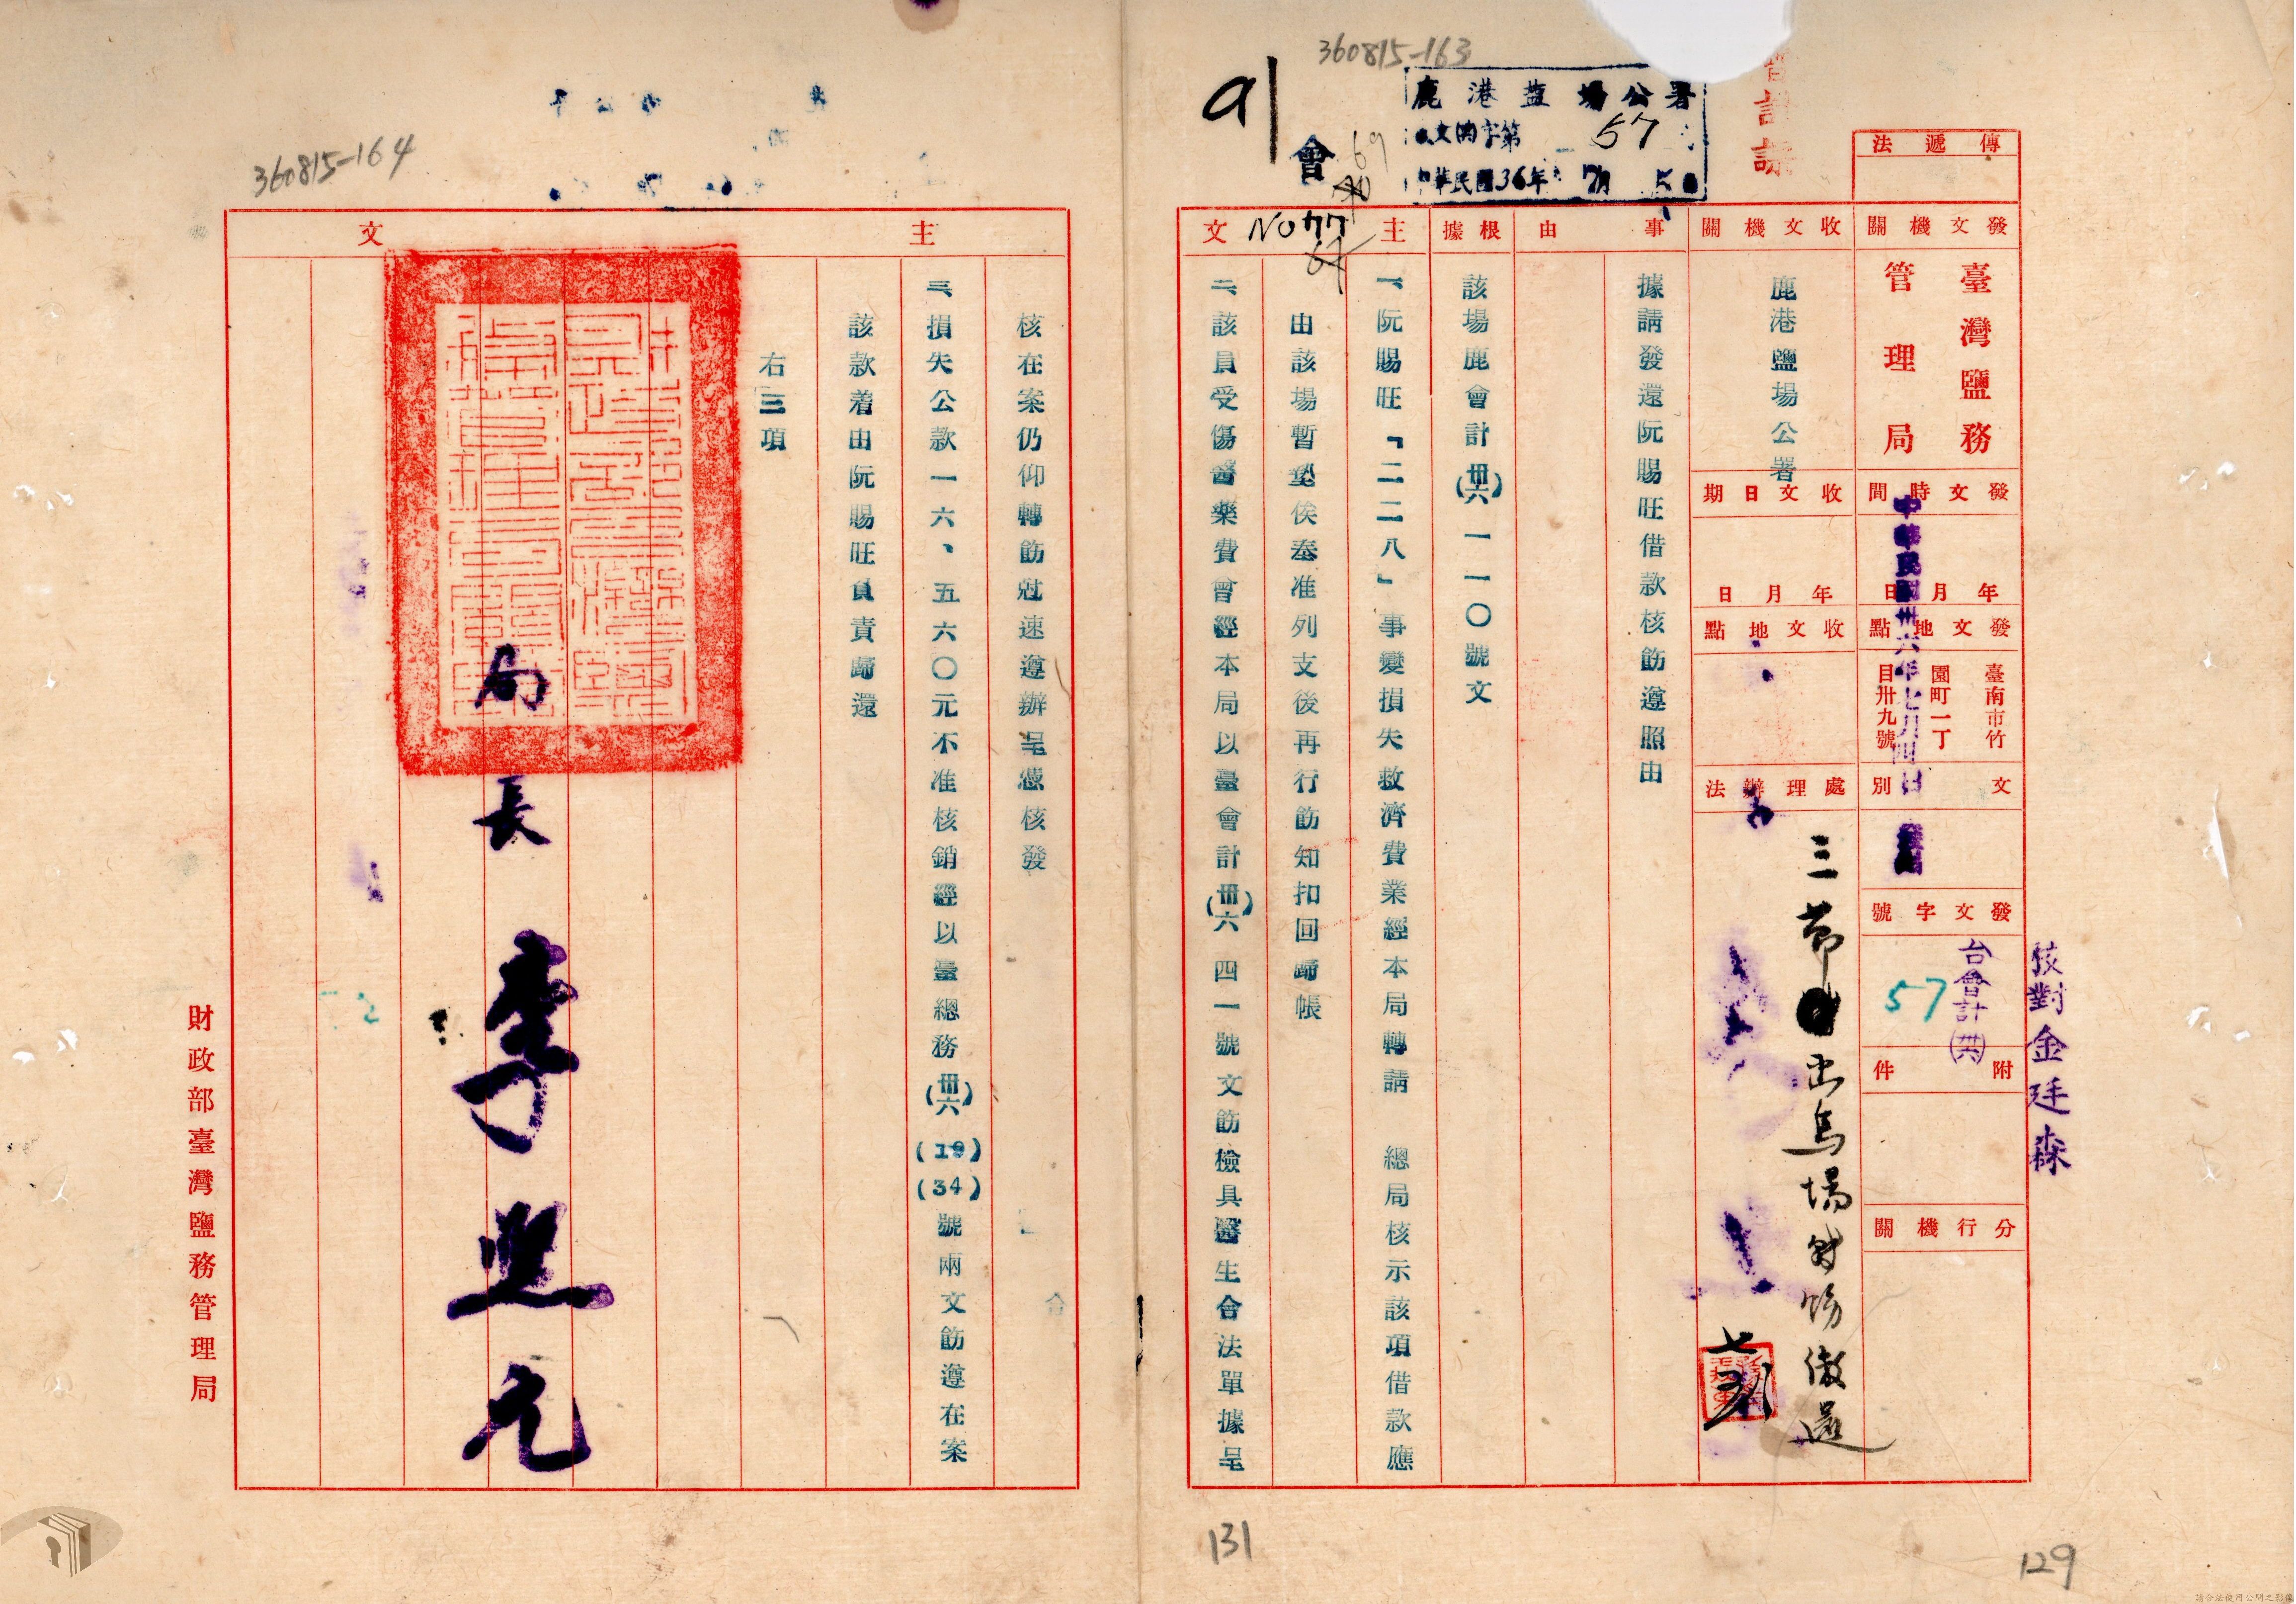 360815-163
會計課
鹿港鹽場公署
收文鹿字第57
中華民國36年7月5日
會
69
NO 77
傳遞法
發文機關
臺灣鹽務管理局
發文時間
年月日
中華民國卅六年七月四日
發文地點
臺南市竹園町一丁目卅九號
文別
發文字號
台會計(卅六)
57
附件
分行機關
校對金廷森
收文機關
鹿港鹽場公署
收文日期
年月日
收文地點
處理辦法
事由
據請發還阮賜旺借款核飭遵照由
根據
該場鹿會計(卅六)一一〇號文
主文
一、阮賜旺『二二八』事變損失救濟費業經本局轉請 總局核示該項借款應
由該場暫墊俟奉准列支後再行飭知扣回歸帳
二、該員受傷醫藥費曾經本局以臺會計(卅六)四一號文飭檢具醫生合法單據呈
131
129
360815-164
主文
核在案仍仰轉飭尅速遵辦呈憑核發
三、損失公款一六、五六〇元不准核銷經以臺總務(卅六)(19)(34)號兩文飭遵在案
該款着由阮賜旺負責歸還
右三項
局長 李興元
財政部臺灣鹽務管理局
請合法使用公開之影像